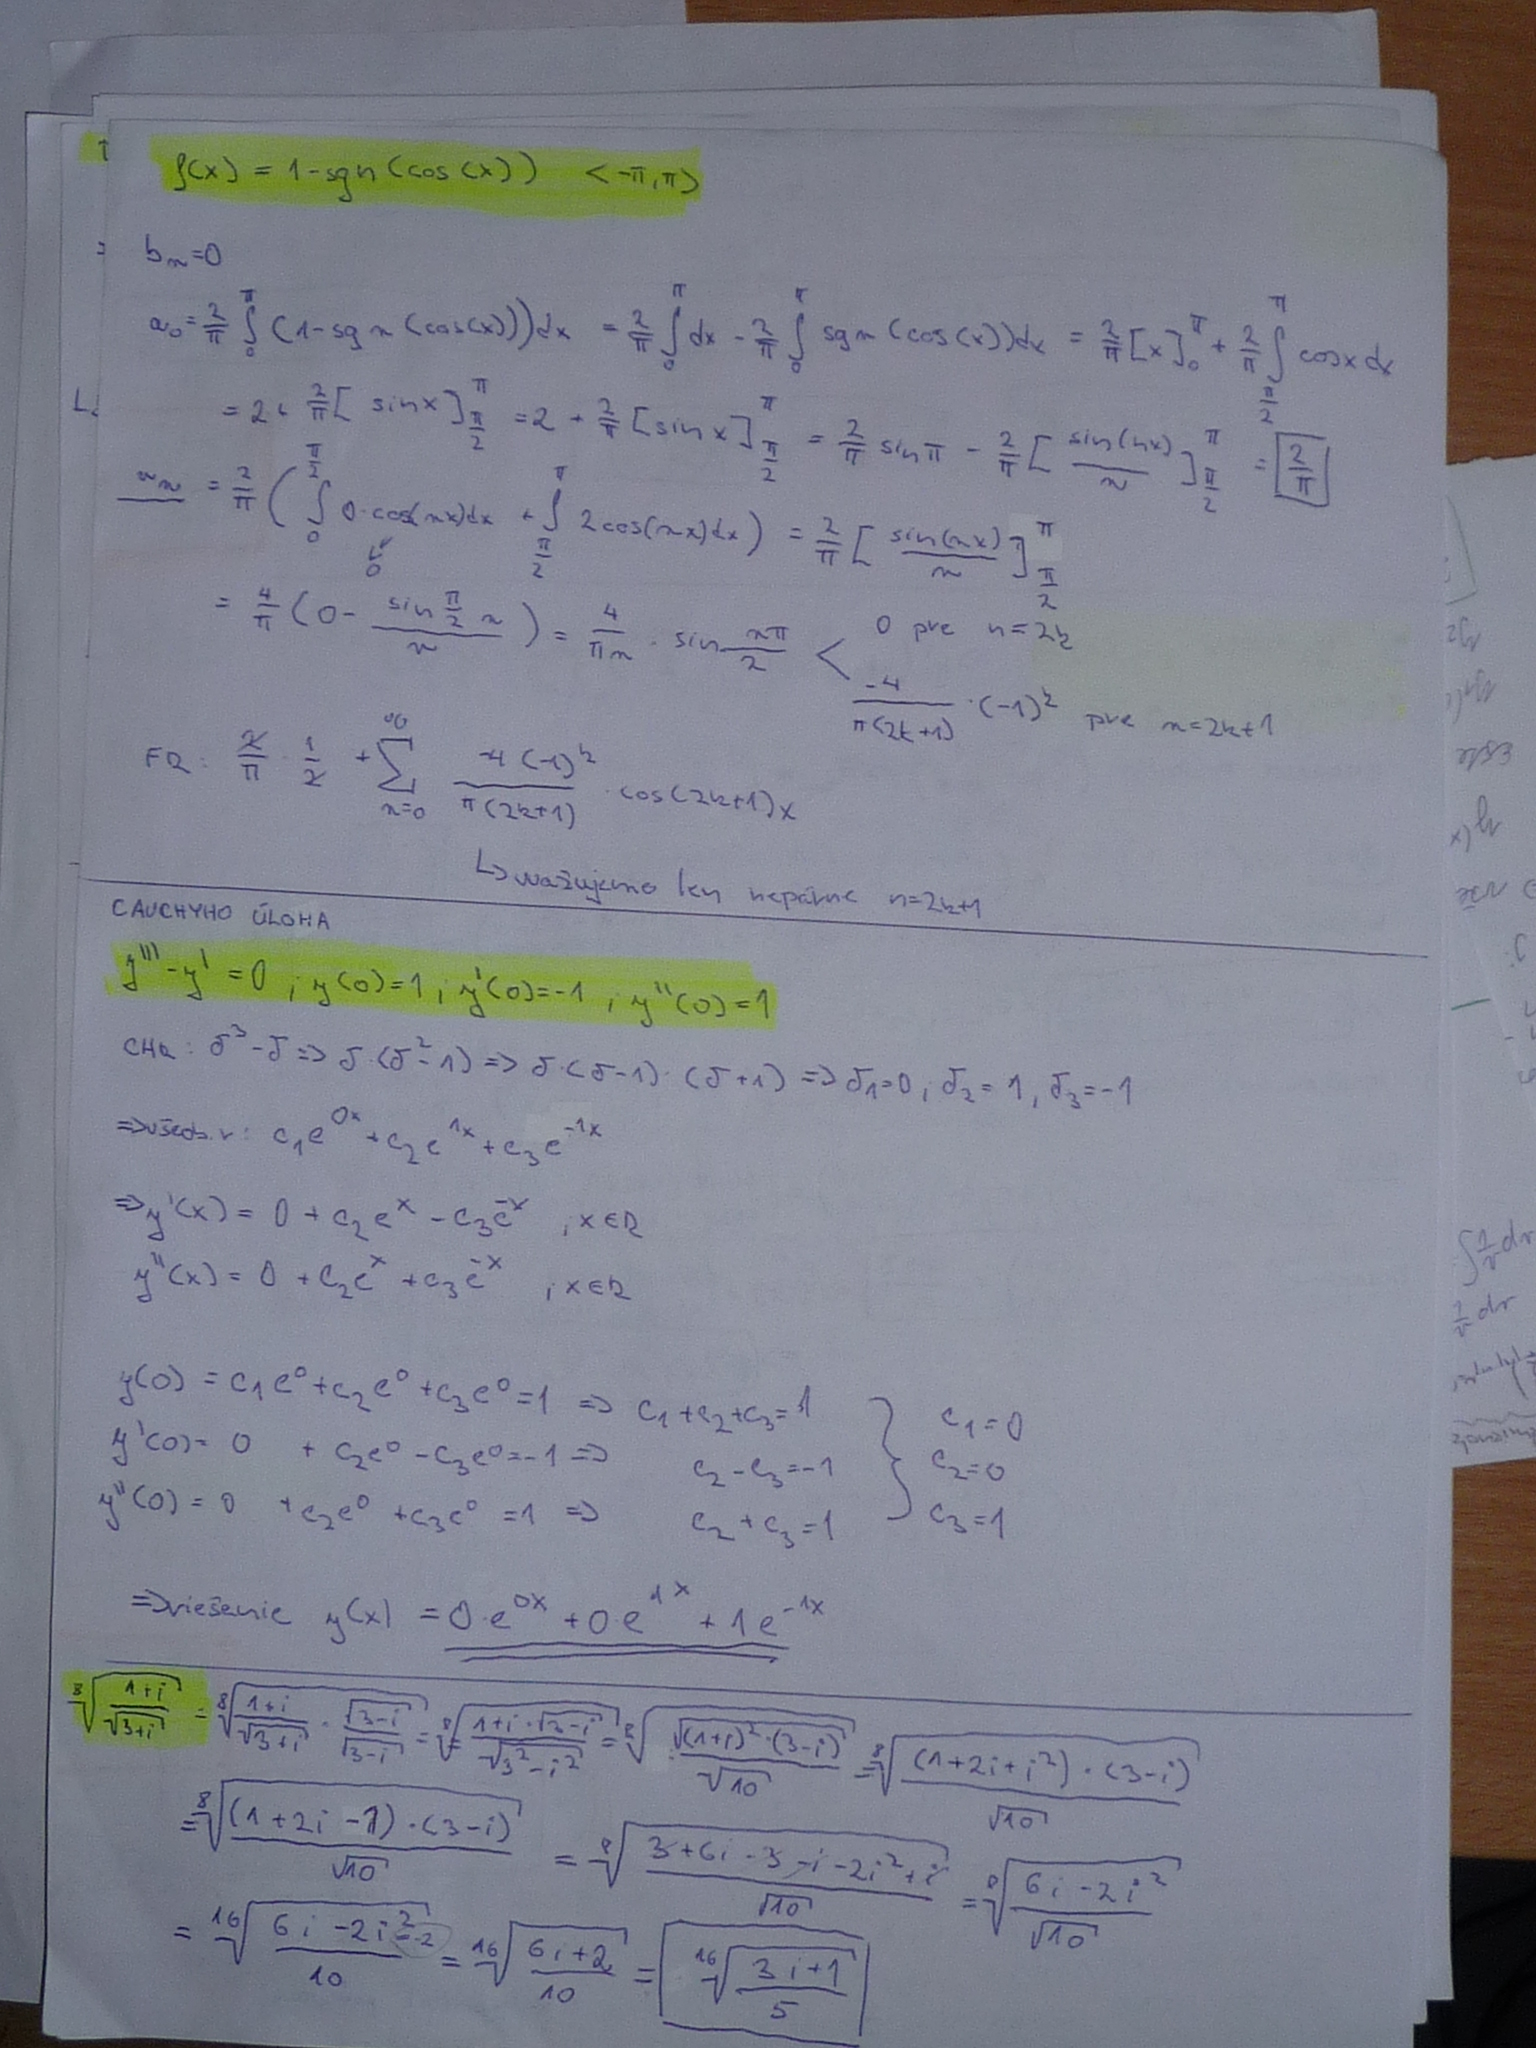 f(x) = 1-sgn(cos(x)) <-π,π>
b_n=0
a_0 = 2/π ∫_0^π (1-sgn(cos(x)))dx = 2/π ∫_0^π dx - 2/π ∫_0^π sgn(cos(x))dx = 2/π [x]_0^π + 2/π ∫_{π/2}^π cosx dx
= 2 + 2/π [sinx]_{π/2}^π = 2 + 2/π [sinx]_{π/2}^π = 2/π sinπ - 2/π [sin(nx)/n]_{π/2}^π = 2/π
a_n = 2/π ( ∫_0^{π/2} 0·cos(nx)dx + ∫_{π/2}^π 2cos(nx)dx ) = 2/π [sin(nx)/n]_{π/2}^π
0
= 4/π (0 - sin π/2 n / n) = 4/πn · sin nπ/2 < 0 pre n=2k
-4/π(2k+1) ·(-1)^k pre n=2k+1
FR: 2/π · 1/2 + ∑_{n=0}^∞ -4(-1)^k / π(2k+1) · cos(2k+1)x
↳ uvažujeme len nepárne n=2k+1
CAUCHYHO ÚLOHA
y'''-y' = 0 ; y(0)=1 ; y'(0)=-1 ; y''(0)=1
CHR: δ^3-δ => δ·(δ^2-1) => δ·(δ-1)·(δ+1) => δ_1=0, δ_2=1, δ_3=-1
=> všeob. r: c_1e^{0x} + c_2e^{1x} + c_3e^{-1x}
=> y'(x) = 0 + c_2e^x - c_3e^{-x} , x∈R
y''(x) = 0 + c_2e^x + c_3e^{-x} , x∈R
y(0) = c_1e^0 + c_2e^0 + c_3e^0 = 1 => c_1+c_2+c_3=1 } c_1=0
y'(0) = 0 + c_2e^0 - c_3e^0 = -1 => c_2-c_3=-1 c_2=0
y''(0) = 0 + c_2e^0 + c_3e^0 = 1 => c_2+c_3=1 c_3=1
=> riešenie y(x) = 0·e^{0x} + 0·e^{1x} + 1e^{-1x}
⁸√(1+i/√(3+i)) = ⁸√(1+i/√(3+i) · √(3-i)/√(3-i)) = ⁸√(1+i·√(3-i)/√(3²-i²)) = ⁸√(√((1+i)²·(3-i))/√10) = ⁸√((1+2i+i²)·(3-i)/√10)
= ⁸√((1+2i-1)·(3-i)/√10) = ⁸√(3+6i-3-i-2i²+i/√10) = ⁸√(6i-2i²/√10)
= ¹⁶√(6i-2i²/10) = ¹⁶√(6i+2/10) = ¹⁶√(3i+1/5)